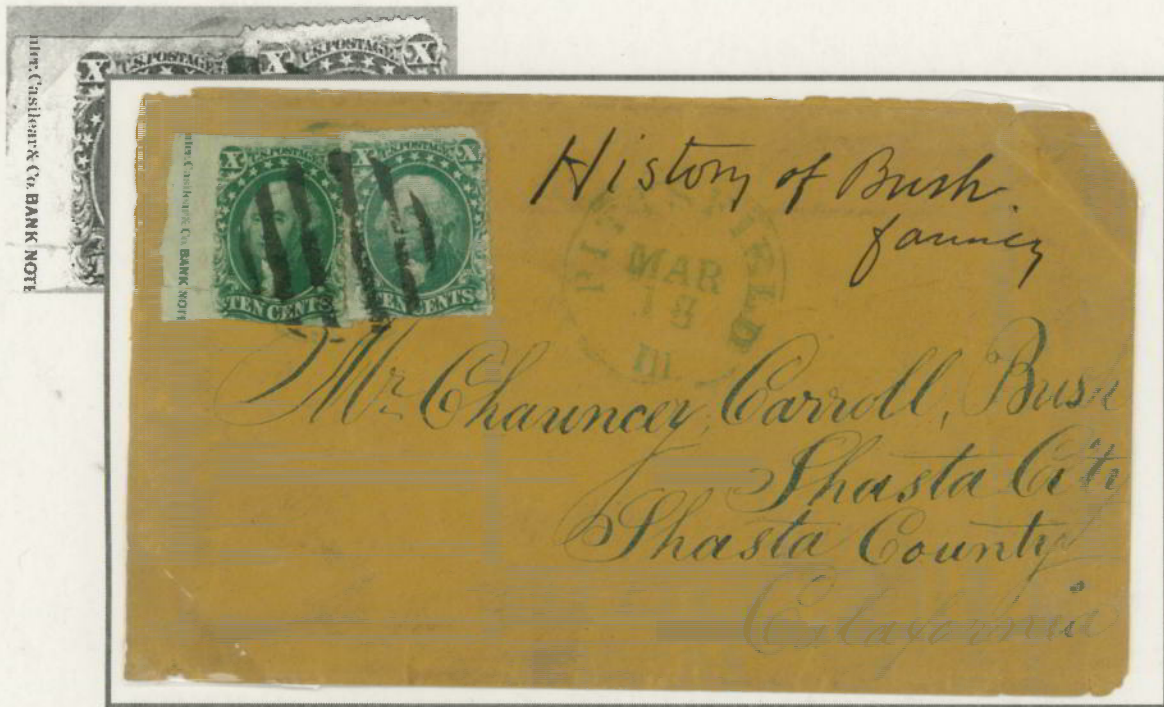 U.S. POSTAGE
U.S. POSTAGE
X X X X
Casilear & Co. BANK NOTE
X U.S. POSTAGE X
X U.S. POSTAGE X
Casilear & Co. BANK NOTE
TEN CENTS
TEN CENTS
History of Bush
PITTSFIELD
MAR
18
Ill
Mr. Chauncey, Carroll, Bush
Shasta City
Shasta County
California